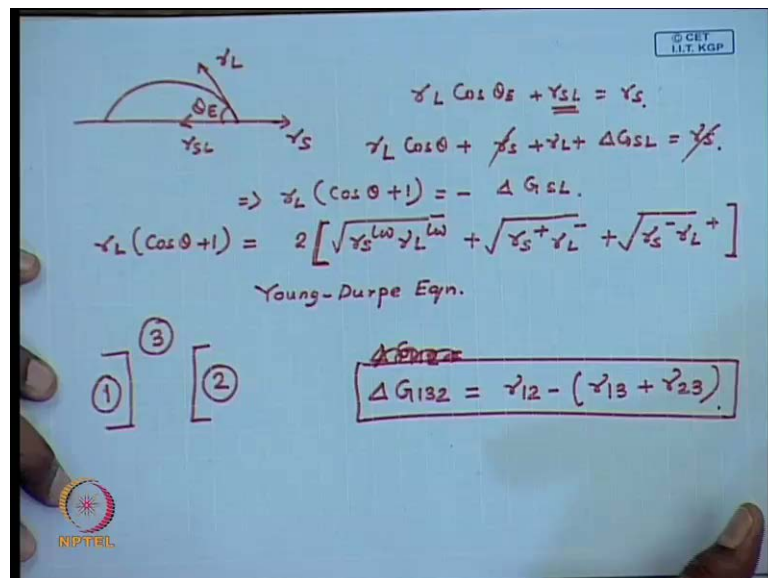 © CET
I.I.T. KGP
γL
θE
γSL
γS
γL Cos θE + γSL = γS.
γL Cos θ + γS + γL + ΔGSL = γS.
=> γL (Cos θ + 1) = - ΔGSL.
γL (Cos θ + 1) = 2 [ √γS^LW γL^LW + √γS^+ γL^- + √γS^- γL^+ ]
Young-Durpe Eqn.
① ③ ②
ΔG132 = γ12 - (γ13 + γ23).
NPTEL